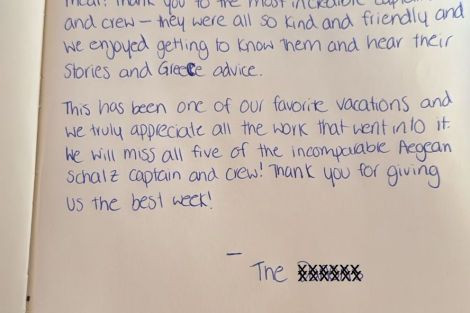 meal! Thank you to the most incredible captain
and crew – they were all so kind and friendly and
we enjoyed getting to know them and hear their
stories and Greece advice.
This has been one of our favorite vacations and
we truly appreciate all the work that went into it.
We will miss all five of the incomparable Aegean
Schatz captain and crew! Thank you for giving
us the best week!
– The